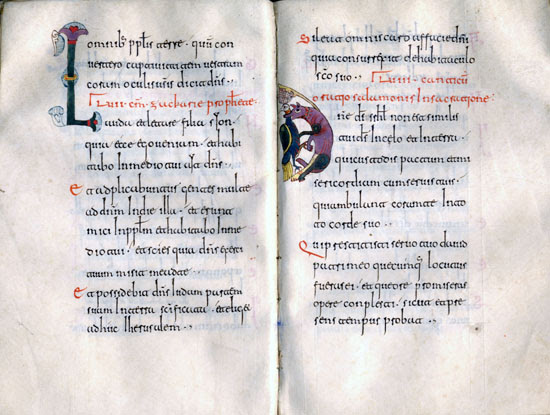 omnibs pplis terre · quum con
versero captivitatem vestram
coram oculis vestris dicit dns
ctm zaccarie prophetae
Lauda et letare filia sion
quia ecce ego venio · et habi
tabo in medio tui ait dns ·
Et adplicabuntur gentes multae
ad dnm in die illa · et erunt
mici in pplm et habitabo in me
dio tui · et scies quia dns exerci
tuum misit me ad te ·
Et possidebit dns iudam partem
suam in terra scificata · et eliget
adhuc iherusalem ··
Sileat omnis caro a facie dni
quia consurrexit de habitaculo
sco suo · canticum
oratio salamonis in sacratione
Dne ds srhl non est similis
tui ds in celo et in terra
qui custodis pactum et mi
sericordiam cum servis tuis ·
qui ambulant coram te in to
to corde suo ·
Qui prestitisti servo tuo david
patri meo quecumq locutus
fueras ei · et que ore promiseras
opere conplesti · sicut et pre
sens tempus probat ··